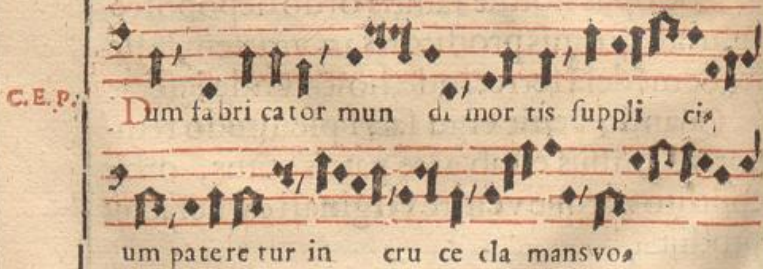 C. E. P. Dum fa bri ca tor mun di mor tis suppli ci,
um patere tur in cru ce cla mans vo,